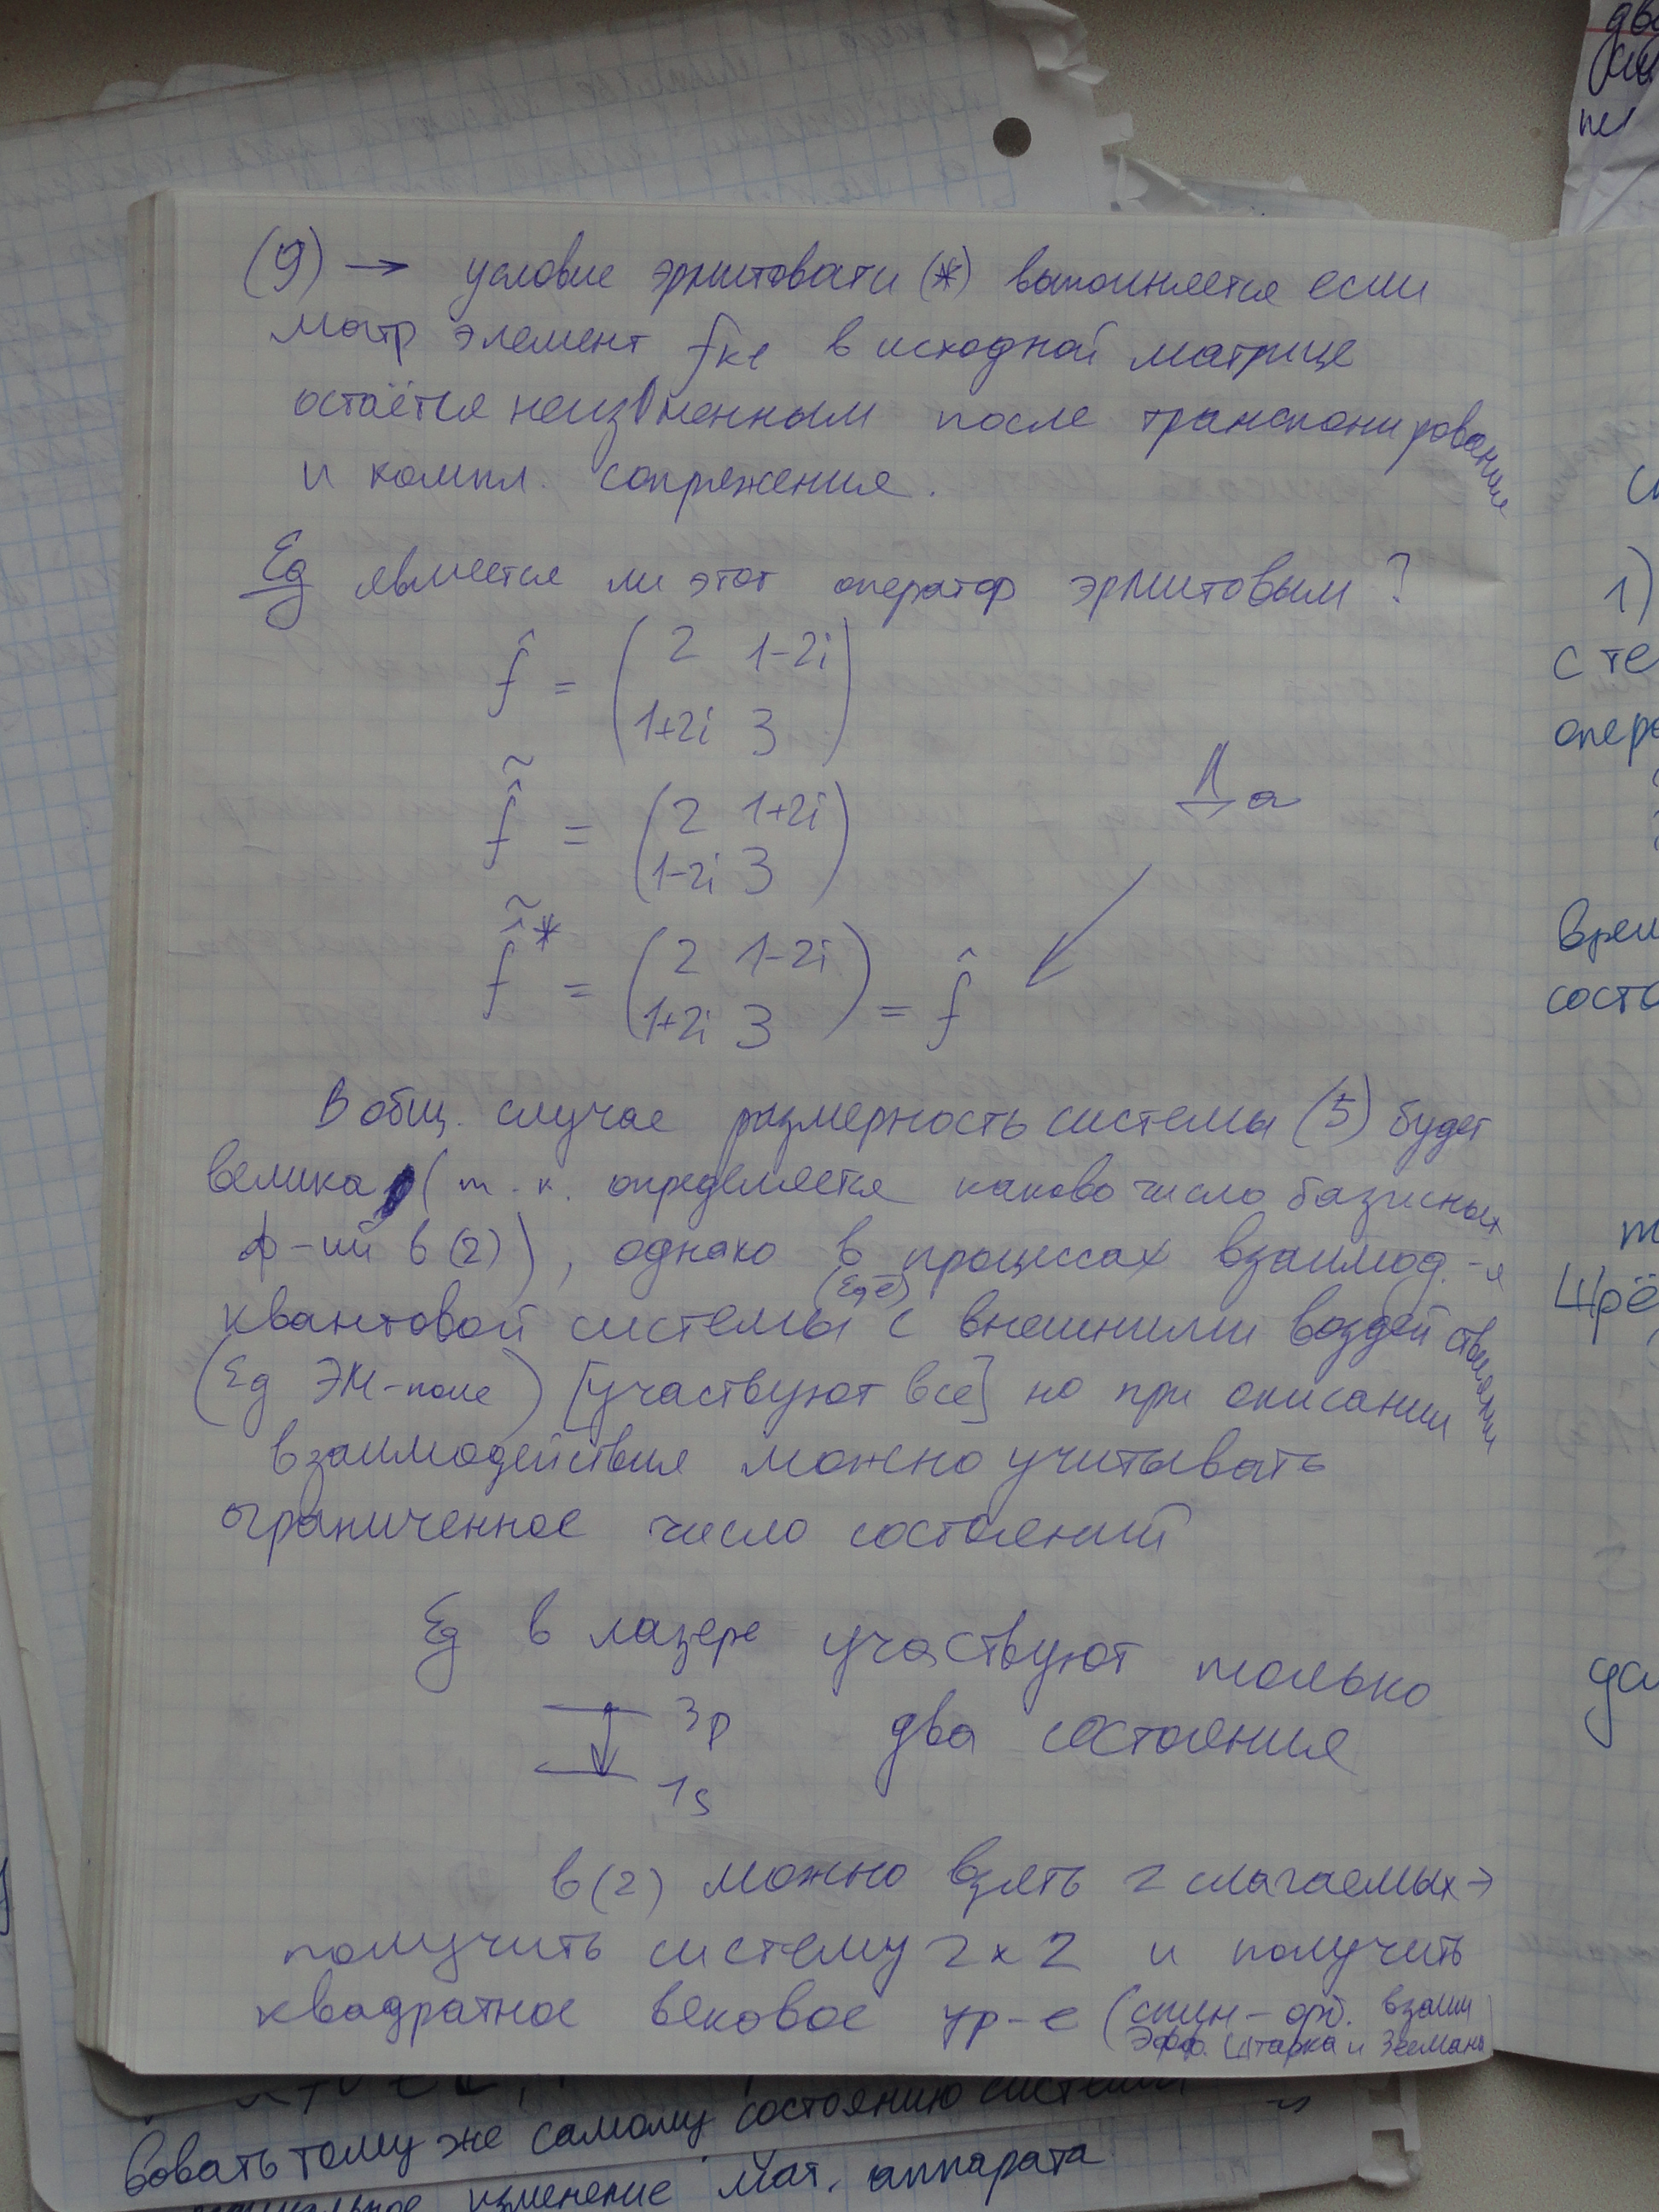 (9) → условие эрмитовати (*) выполняется если
матр элемент fкe в исходной матрице
остаётся неизменным после транспонирования
и компл. сопряжения.
Eg является ли этот оператор эрмитовым?
f̂ = ( 2 1-2i
1+2i 3 )
f̂̃ = ( 2 1+2i
1-2i 3 )
Да
f̂̃* = ( 2 1-2i
1+2i 3 ) = f̂
В общ. случае размерность системы (5) будет
велика (т.к. определяется каково число базисных
ф-ий в (2)), однако в процессах взаимод.-я
(Eg ē)
квантовой системы с внешними воздействиями
(Eg ЭМ-поле) [участвуют все] но при описании
взаимодействия можно учитывать
ограниченное число состояний
Eg в лазере участвуют только
3p два состояния
1s
в (2) можно взять 2 слагаемых →
получить систему 2x2 и получить
квадратное вековое ур-е (спин-орб. взаим
Эфф. Штарка и Зеемана
вовать тому же самому состоянию системы
изменение мат. аппарата
1)
с те
опер
врем
сост
Шрё